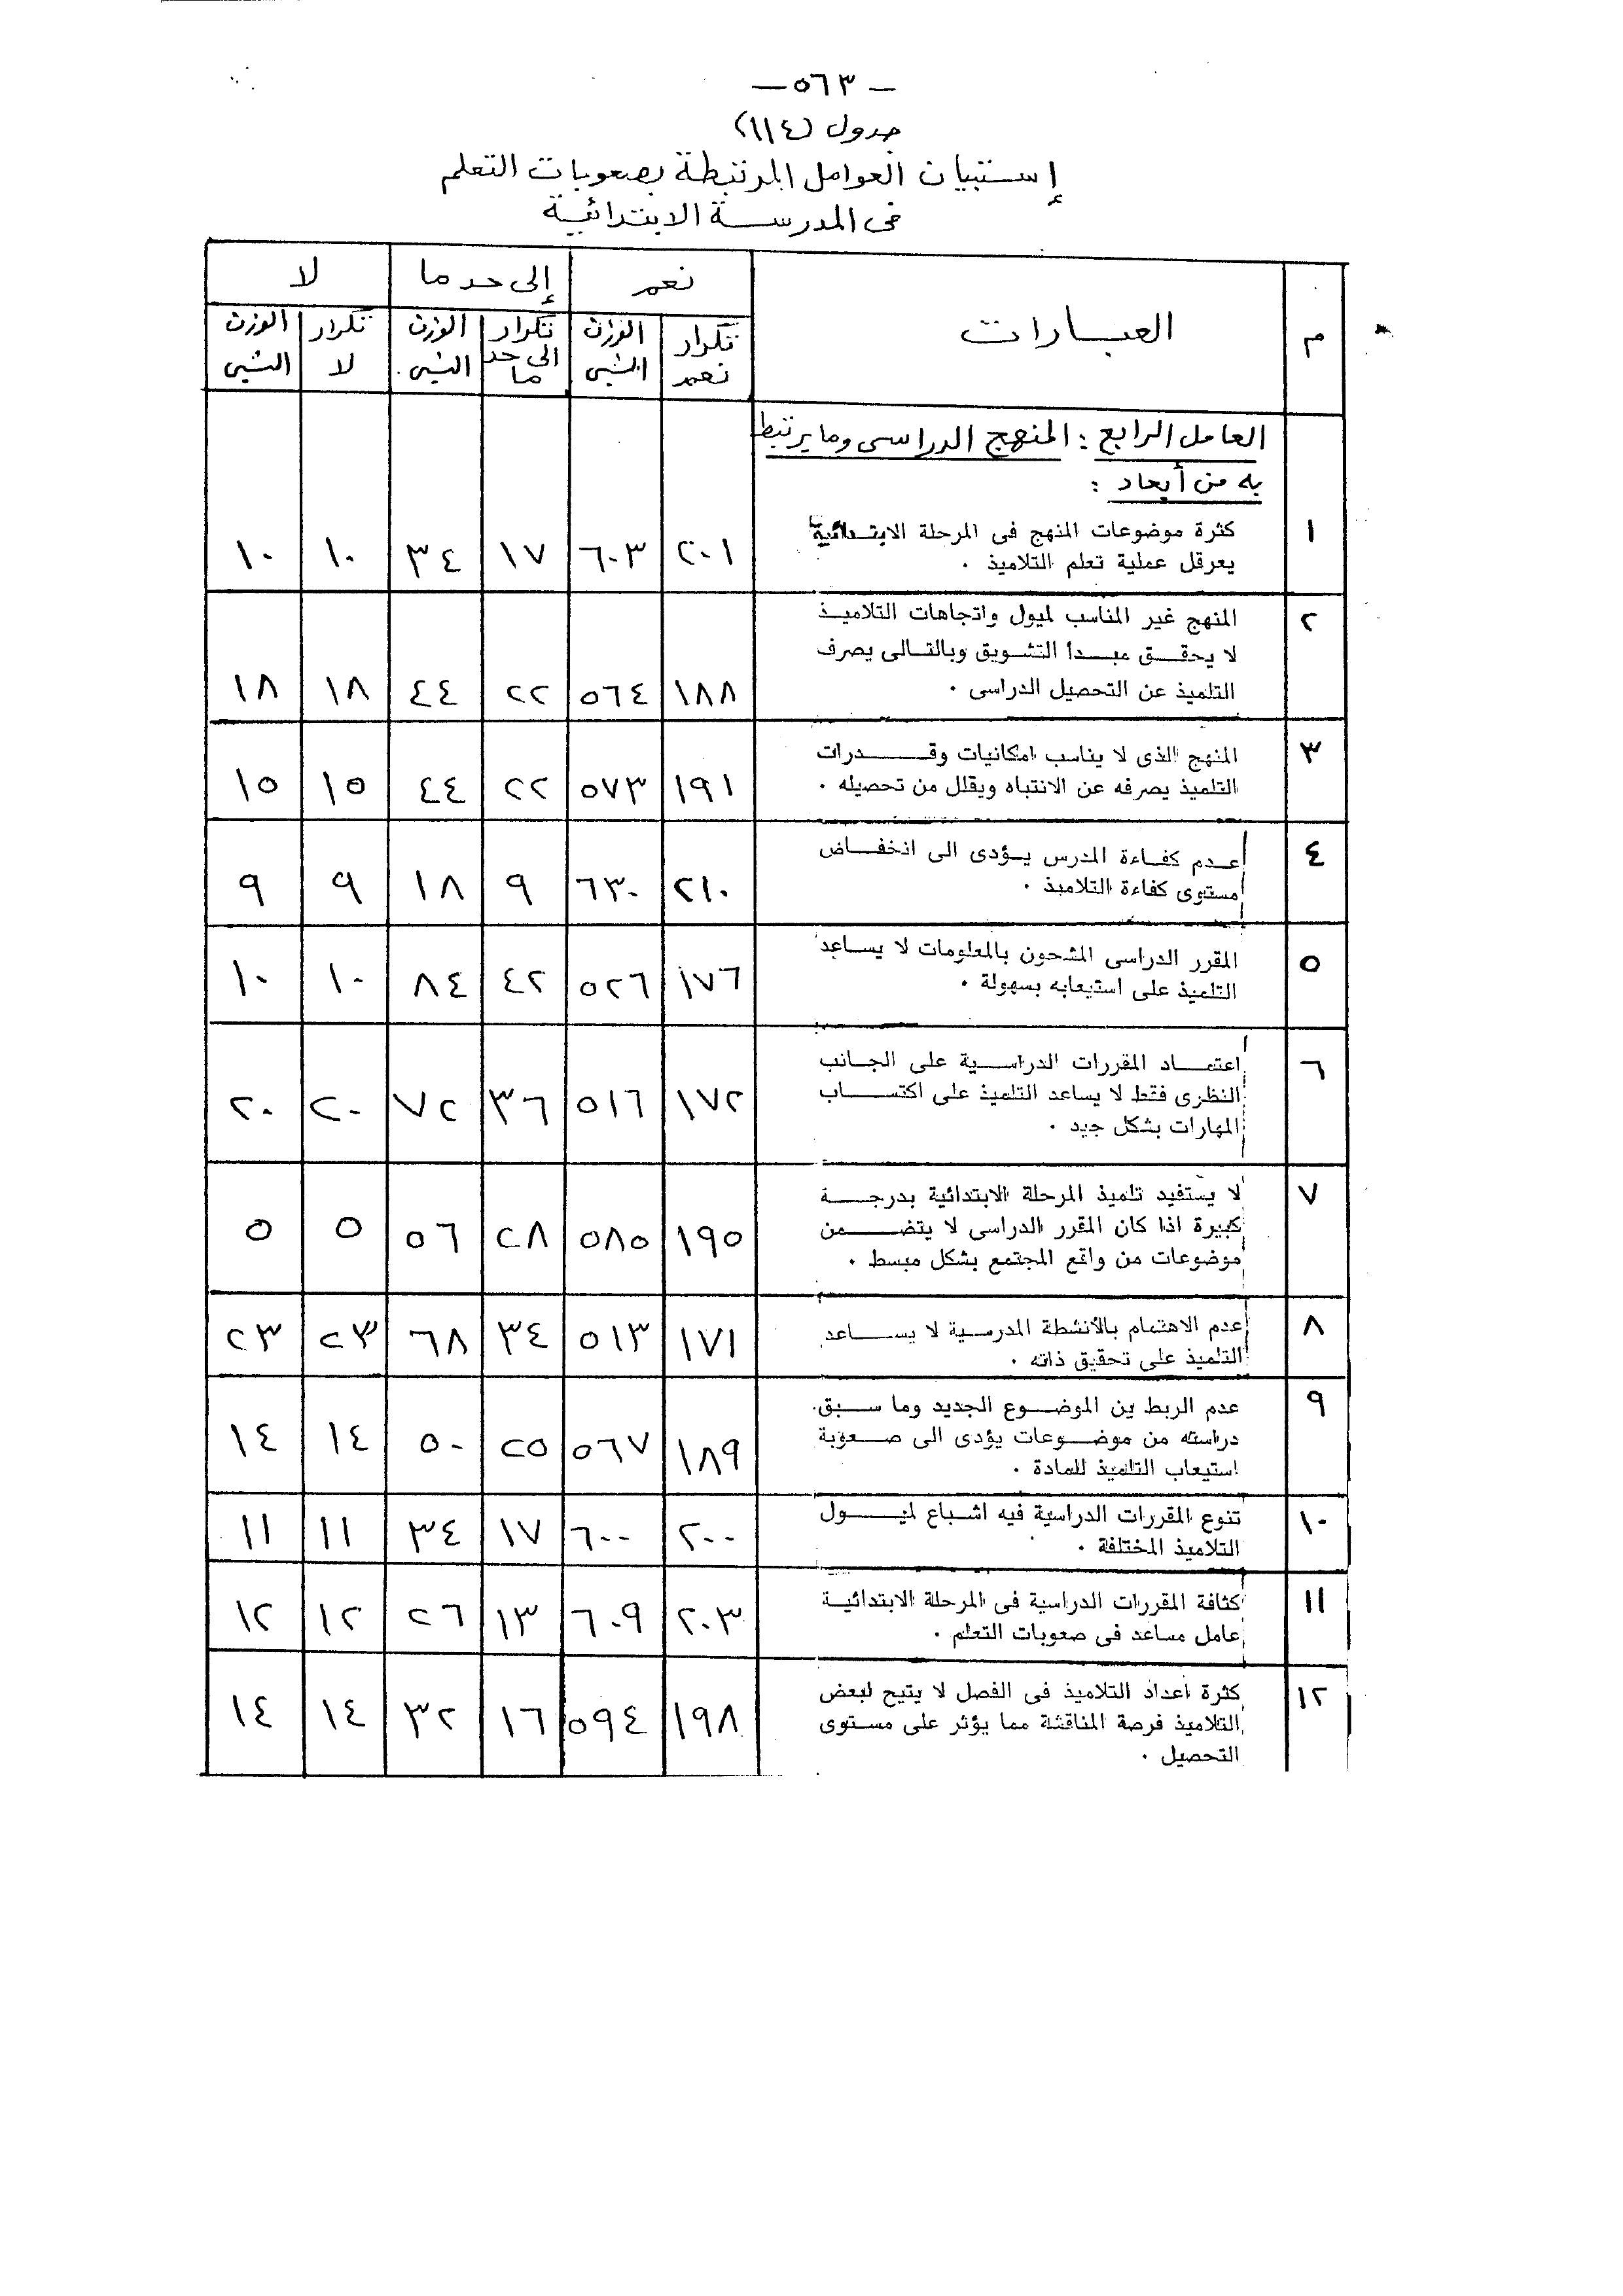 — ٥٦٣ —
جدول (١١٤)
إستبيان العوامل المرتبطة بصعوبات التعلم
فى المدرسة الابتدائية
م العبارات نعم إلى حد ما لا
تكرار نعم الوزن النسبى تكرار الى حد ما الوزن النسبى تكرار لا الوزن النسبى
العامل الرابع : المنهج الدراسى وما يرتبط
به من أبعاد :
١ كثرة موضوعات المنهج فى المرحلة الابتدائية
يعرقل عملية تعلم التلاميذ . ٢٠١ ٦٠٣ ١٧ ٣٤ ١٠ ١٠
٢ المنهج غير المناسب لميول واتجاهات التلاميذ
لا يحقق مبدا التشويق وبالتالى يصرف
التلميذ عن التحصيل الدراسى . ١٨٨ ٥٦٤ ٢٢ ٤٤ ١٨ ١٨
٣ المنهج الذى لا يناسب امكانيات وقدرات
التلميذ يصرفه عن الانتباه ويقلل من تحصيله . ١٩١ ٥٧٣ ٢٢ ٤٤ ١٥ ١٥
٤ عدم كفاءة المدرس يؤدى الى انخفاض
مستوى كفاءة التلاميذ . ٢١٠ ٦٣٠ ٩ ١٨ ٩ ٩
٥ المقرر الدراسى المشحون بالمعلومات لا يساعد
التلميذ على استيعابه بسهولة . ١٧٦ ٥٢٦ ٤٢ ٨٤ ١٠ ١٠
٦ اعتماد المقررات الدراسية على الجانب
النظرى فقط لا يساعد التلميذ على اكتساب
المهارات بشكل جيد . ١٧٢ ٥١٦ ٣٦ ٧٢ ٢٠ ٢٠
٧ لا يستفيد تلميذ المرحلة الابتدائية بدرجة
كبيرة اذا كان المقرر الدراسى لا يتضمن
موضوعات من واقع المجتمع بشكل مبسط . ١٩٥ ٥٨٥ ٢٨ ٥٦ ٥ ٥
٨ عدم الاهتمام بالأنشطة المدرسية لا يساعد
التلميذ على تحقيق ذاته . ١٧١ ٥١٣ ٣٤ ٦٨ ٢٣ ٢٣
٩ عدم الربط ين الموضوع الجديد وما سبق
دراسته من موضوعات يؤدى الى صعوبة
استيعاب التلميذ للمادة . ١٨٩ ٥٦٧ ٢٥ ٥٠ ١٤ ١٤
١٠ تنوع المقررات الدراسية فيه اشباع لميول
التلاميذ المختلفة . ٢٠٠ ٦٠٠ ١٧ ٣٤ ١١ ١١
١١ كثافة المقررات الدراسية فى المرحلة الابتدائية
عامل مساعد فى صعوبات التعلم . ٢٠٣ ٦٠٩ ١٣ ٢٦ ١٢ ١٢
١٢ كثرة اعداد التلاميذ فى الفصل لا يتيح لبعض
التلاميذ فرصة المناقشة مما يؤثر على مستوى
التحصيل . ١٩٨ ٥٩٤ ١٦ ٣٢ ١٤ ١٤